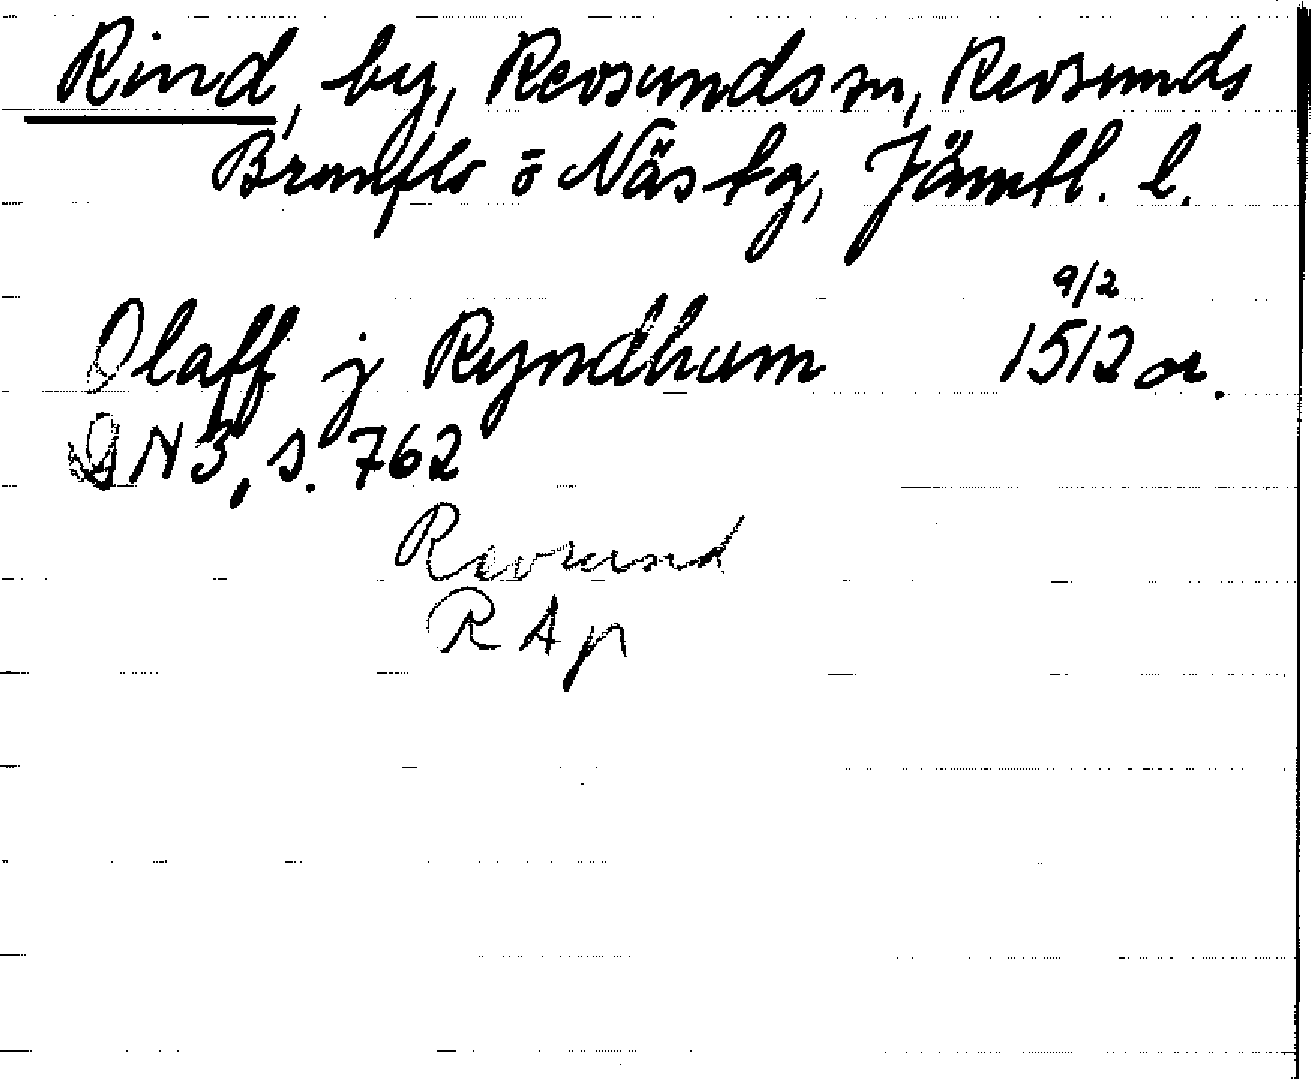 Rind, by, Revsunds sn, Revsunds
Brunflo ō Näs tg, Jämtl. l.
9/2
Olaff j Ryndhum 1512 or.
DN3, s. 762
Revsund
RAp